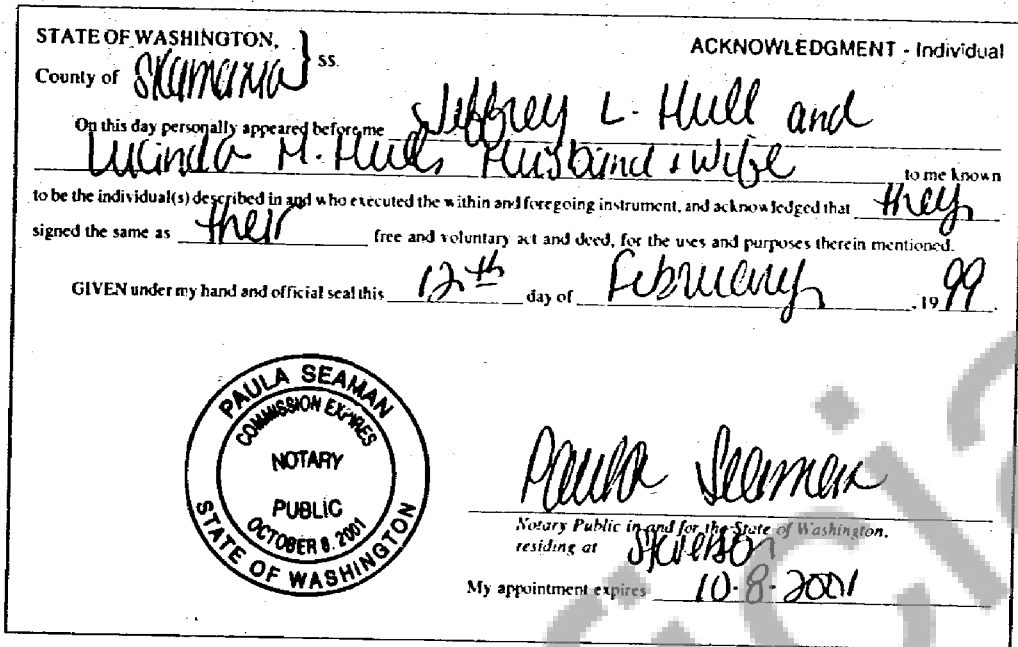 STATE OF WASHINGTON,
County of Skamania } ss.
ACKNOWLEDGMENT - Individual
On this day personally appeared before me Jeffrey L. Hull and
Lucinda M. Hull, Husband & Wife to me known
to be the individual(s) described in and who executed the within and foregoing instrument, and acknowledged that they
signed the same as their free and voluntary act and deed, for the uses and purposes therein mentioned.
GIVEN under my hand and official seal this 12th day of February, 1999.
PAULA SEAMAN
COMMISSION EXPIRES
NOTARY
PUBLIC
OCTOBER 8, 2001
STATE OF WASHINGTON
Paula Seaman
Notary Public in and for the State of Washington,
residing at Stevenson
My appointment expires 10-8-2001